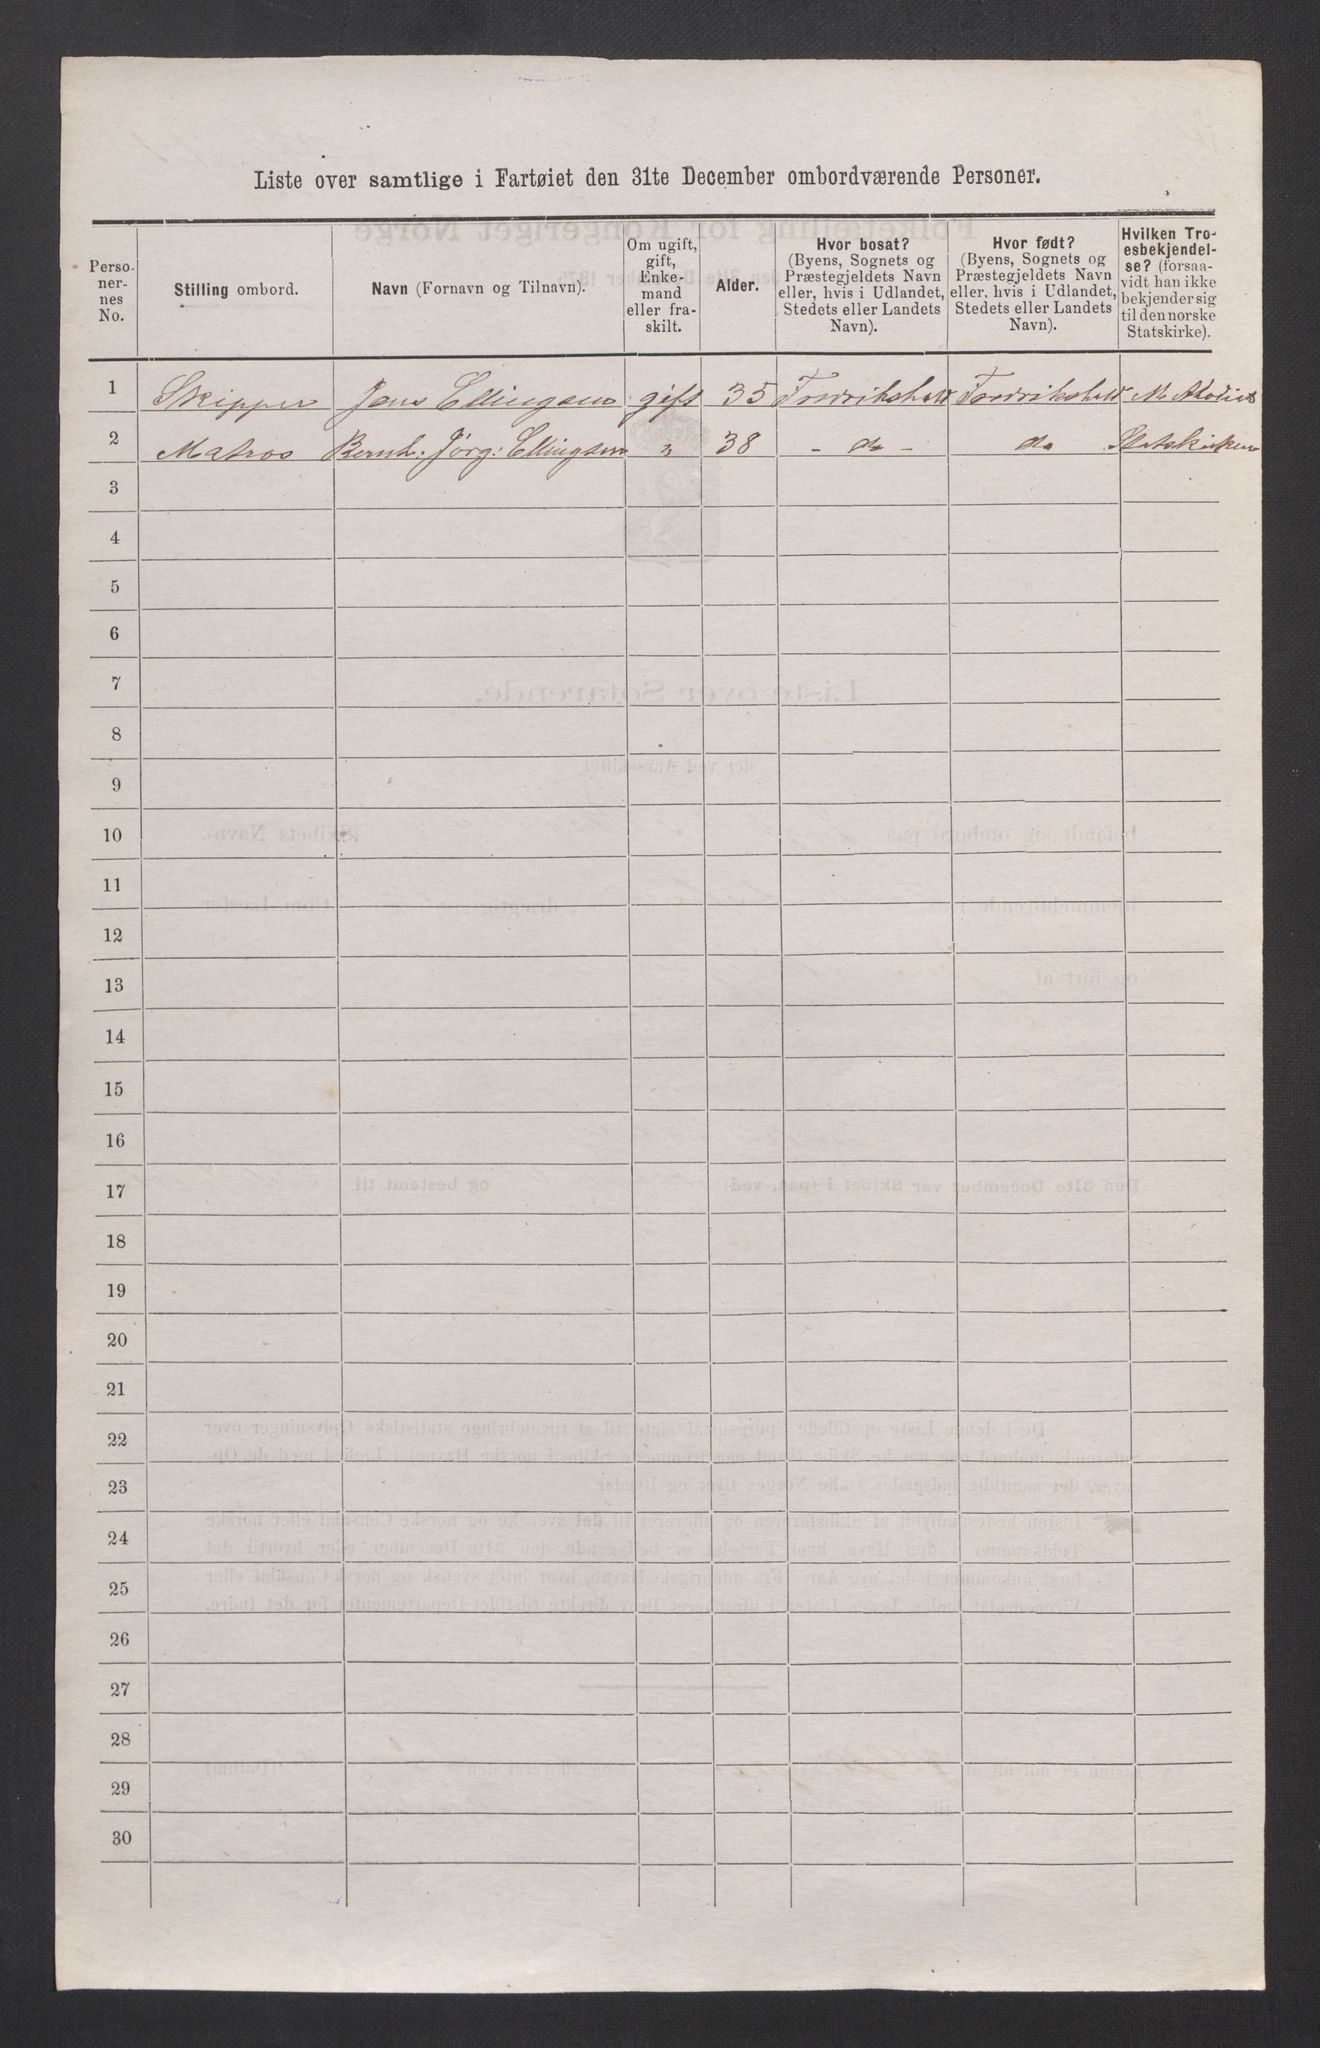 Liste over samtlige i Fartøiet den 31te December ombordværende Personer.
Perso-
ner-
nes
No.
Stilling ombord.
Navn (Fornavn og Tilnavn).
Om ugift,
gift,
Enke-
mand
eller fra-
skilt.
Alder.
Hvor bosat?
(Byens, Sognets og
Præstegjeldets Navn
eller, hvis i Udlandet,
Stedets eller Landets
Navn).
Hvor født?
(Byens, Sognets og
Præstegjeldets Navn
eller, hvis i Udlandet,
Stedets eller Landets
Navn).
Hvilken Tro-
esbekjendel-
se? (forsaa-
vidt han ikke
bekjender sig
til den norske
Statskirke).
1 Skipper Jens Ellingsen gift 35 Fredrikshald Fredrikshald Methodist
2 Matros Bernh. Jørg: Ellingsen " 38 - do - do Statskirken
3
4
5
6
7
8
9
10
11
12
13
14
15
16
17
18
19
20
21
22
23
24
25
26
27
28
29
30